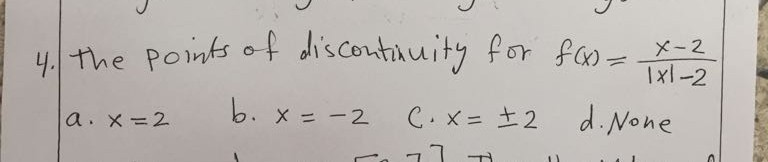 4. the points of discontinuity for f(x) = x-2 / |x|-2
a. x=2 b. x = -2 C. x = ±2 d. None